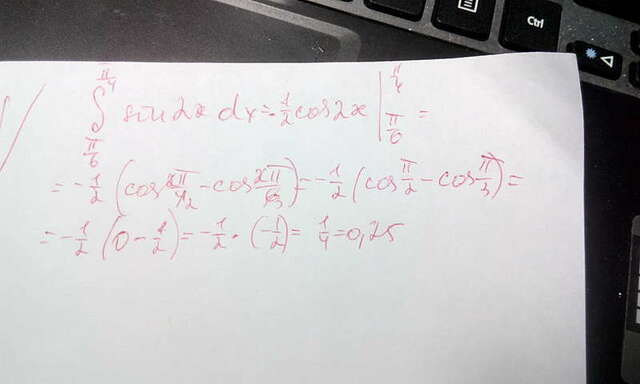 Ctrl
∫_{π/6}^{π/4} sin 2x dx = -1/2 cos 2x |_{π/6}^{π/4} =
= -1/2 (cos 2π/4 2 - cos 2π/6 3) = -1/2 (cos π/2 - cos π/3) =
= -1/2 (0 - 1/2) = -1/2 · (-1/2) = 1/4 = 0,25